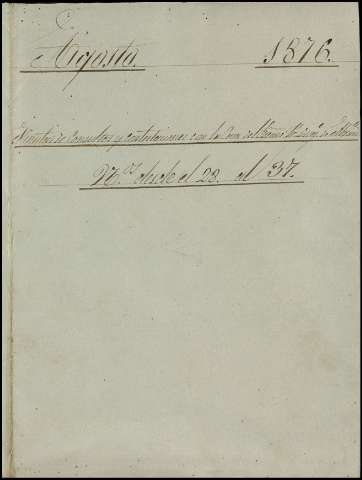 Agosto. 1876.
Minutas de Consultas y contestaciones con la
N.os desde el 28. al 37.